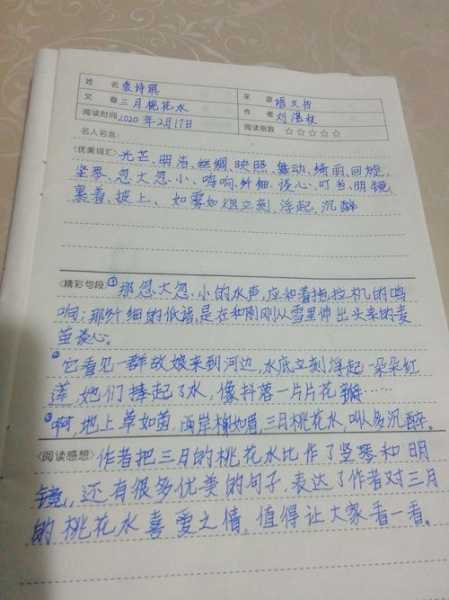 姓 名 袁诗琪 来 源 语文书
文 章 三月桃花水 作 者 刘湛秋
阅读时间 2020年2月17日 阅读指数 ☆☆☆☆☆
名人名言:
〈优美词汇〉光芒、明洁、丝绸、映照、舞动、绮丽、回旋、
竖琴、忽大忽小、鸣响、纤细、谈心、叮当、明镜、
裹着、披上、如雾如烟立刻、浮起、沉醉
〈精彩句段〉①那忽大忽小的水声,应和着拖拉机的鸣
响;那纤细的低语,是在和刚刚从雪里伸出头来的麦
苗谈心。
②它看见一群姑娘来到河边,水底立刻浮起一朵朵红
莲,她们捧起了水,像抖落一片片花瓣……
③啊,地上草如茵,两岸柳如眉,三月桃花水,叫人多沉醉。
〈阅读感想〉作者把三月的桃花水比作了竖琴和明
镜,还有很多优美的句子,表达了作者对三月
的桃花水喜爱之情,值得让大家看一看。